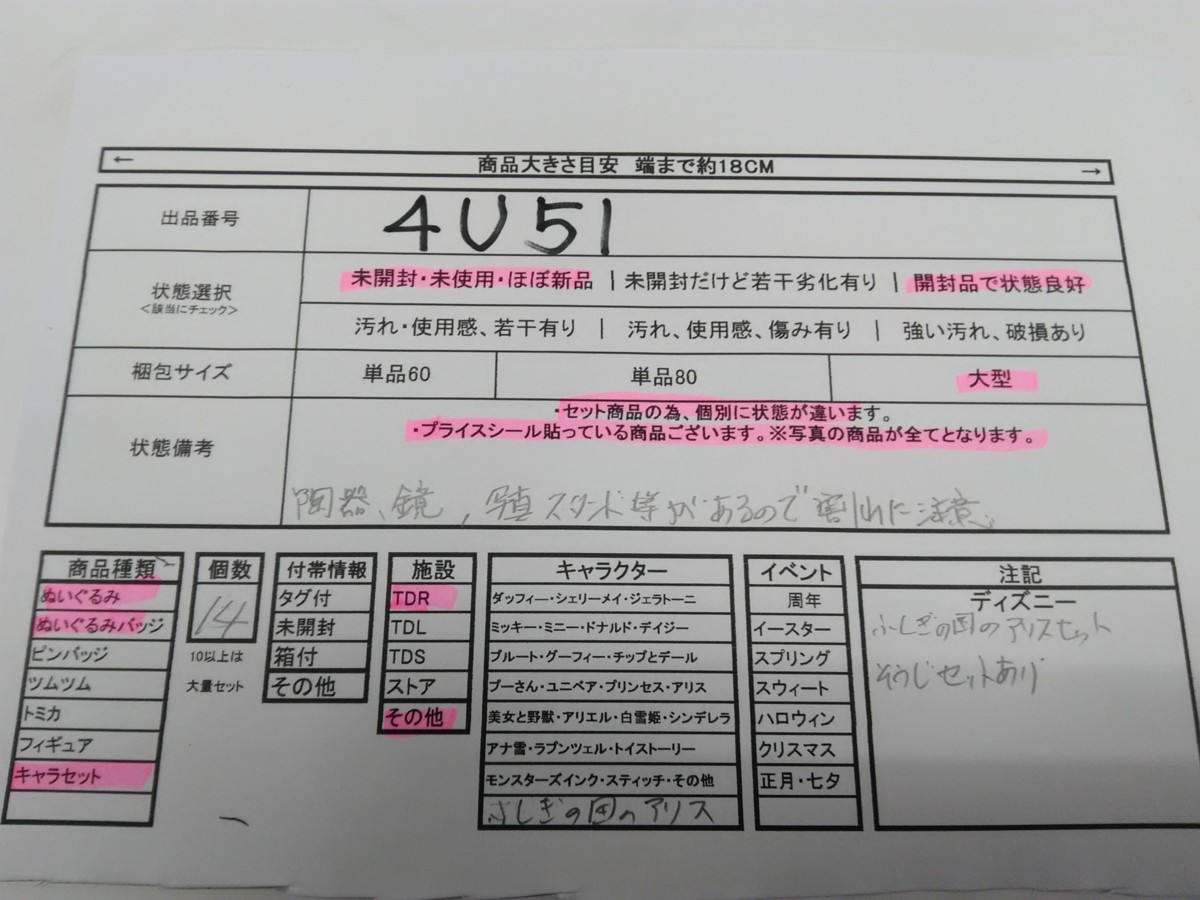 ← 商品大きさ目安 端まで約18CM →
出品番号 4U51
状態選択 未開封・未使用・ほぼ新品 | 未開封だけど若干劣化有り | 開封品で状態良好
<該当にチェック>
汚れ・使用感、若干有り | 汚れ、使用感、傷み有り | 強い汚れ、破損あり
梱包サイズ 単品60 単品80 大型
状態備考 ・セット商品の為、個別に状態が違います。
・プライスシール貼っている商品ございます。※写真の商品が全てとなります。
陶器、鏡、写真スタンド等があるので割れに注意
商品種類 個数 付帯情報 施設 キャラクター イベント 注記
ぬいぐるみ 14 タグ付 TDR ダッフィー・シェリーメイ・ジェラトーニ 周年 ディズニー
ぬいぐるみバッジ 未開封 TDL ミッキー・ミニー・ドナルド・デイジー イースター ふしぎの国のアリスセット
ピンバッジ 10以上は 箱付 TDS プルート・グーフィー・チップとデール スプリング そうじセットあり
ツムツム 大量セット その他 ストア プーさん・ユニベア・プリンセス・アリス スウィート
トミカ その他 美女と野獣・アリエル・白雪姫・シンデレラ ハロウィン
フィギュア アナ雪・ラプンツェル・トイストーリー クリスマス
キャラセット モンスターズインク・スティッチ・その他 正月・七夕
ふしぎの国のアリス